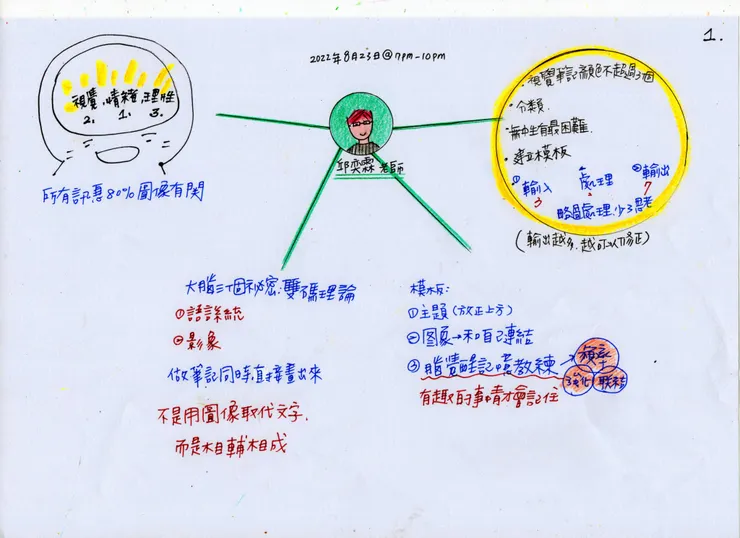 1.
2022年8月23日@7pm-10pm
視覺.情緒.理性
2. 1. 3.
所有訊息80%圖像有関
邱奕霖老師
·視覺筆記顏色不超過3個
·分類.
·無中生有最困難.
·建立模板
①輸入 處理 ③輸出
3 2 7
略過處理.少了思考
(輸出越多.越可以修正)
大腦三個祕密:雙碼理論
①語言系統
②影像
做筆記同時直接畫出來
不是用圖像取代文字.
而是相輔相成
模板:
①主題(放正上方)
②图象→和自己連結
③腦費
記憶教練→
強化 联結
有趣的事情才會記住